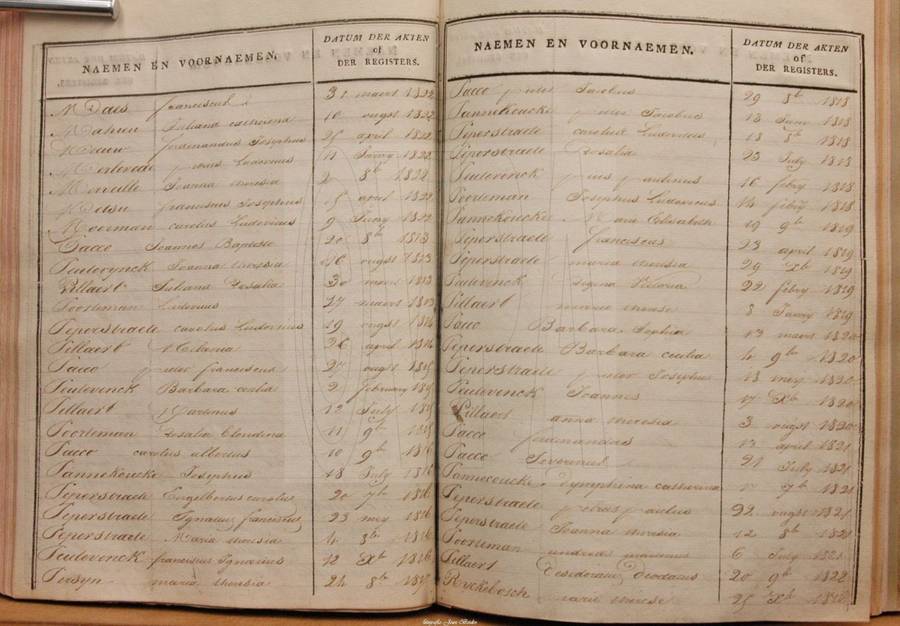 NAEMEN EN VOORNAEMEN.
DATUM DER AKTEN
of
DER REGISTERS.
Maes franciscus 31 maert 1822
Mahieu Juliana 10 augst 1822
Meeuw ferdinandus Josephus 25 april 1822
Ludovicus 11 Janry 1822
Merveille Joanna theresia 8b 1822
franciscus Josephus 15 april 1822
Moerman carolus Ludovicus 9 Janry 1822
Pacco Joannes Baptiste 20 8b 1813
Peuterynck Joanna theresia 26 augst 1813
Pillaert Juliana Rosalia 30 maert 1813
Poorteman Ludovicus 27 maert 1813
Peperstraete carolus Ludovicus 19 augst 1814
Pillaert Melania 26 april 1814
Pacco pieter franciscus 27 augst 1815
Peutevinck Barbara cecilia 2 february 1815
Pillaert Martinus 12 July 1815
Poorteman Rosalia Clendina 11 9b 1815
Pacco carolus albertus 10 9b 1816
Pannekoucke Josephus 18 July 1816
Peperstraete Engelbertus carolus 20 7b 1816
Peperstraete Ignatius franciscus 23 mey 1816
Peperstraete Maria theresia 4 8b 1816
Peutevinck franciscus Ignatius 12 Xb 1816
Persyn maria theresia 24 8b 1817
NAEMEN EN VOORNAEMEN.
DATUM DER AKTEN
of
DER REGISTERS.
Pacco pieter Jacobus 29 8b 1818
Pannekoucke pieter Jacobus 13 Janry 1818
Peperstraete carolus Ludovicus 18 8b 1818
Peperstraete Rosalia 23 July 1818
Peutevinck 16 febry 1818
Poorteman Josephus Ludovicus 14 febry 1818
Pannekoucke Marie Elisabeth 19 9b 1819
Peperstraete franciscus 23 april 1819
Peperstraete maria theresia 29 Xb 1819
Peutevinck Regina Victoria 22 febry 1819
Pillaert marie therese 8 Janry 1819
Pacco Barbara Sophia 13 maert 1820
Peperstraete Barbara cecilia 4 9b 1820
Peperstraete pieter Josephus 13 mey 1820
Peutevinck Joannes 17 Xb 1820
Pillaert anna theresia 3 augst 1820
Pacco ferdinandus 13 april 1821
Pacco Severinus 21 July 1821
Pannecoucke Dymphrina catharina 17 7b 1821
Peperstraete petrus paulus 22 augst 1821
Peperstraete Joanna theresia 12 8b 1821
Poorteman andreas 6 July 1821
Pillaert Desiderius Deodatus 20 9b 1822
Ryckebosch marie therese 25 Xb